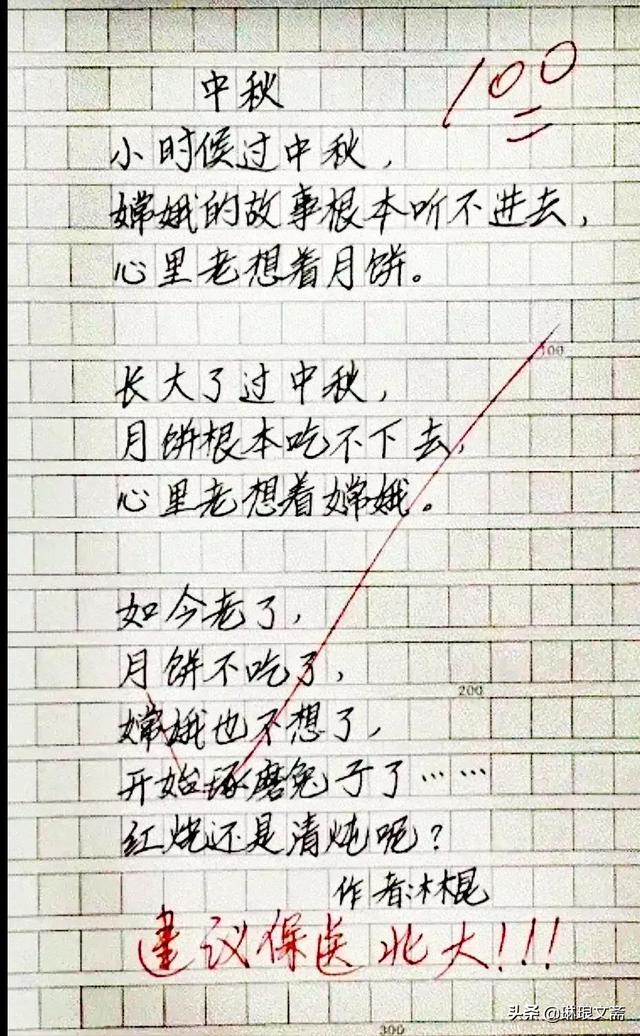 100
中秋
小时候过中秋，
嫦娥的故事根本听不进去，
心里老想着月饼。
长大了过中秋，
月饼根本吃不下去，
心里老想着嫦娥。
100
如今老了，
月饼不吃了，
200
嫦娥也不想了，
开始琢磨兔子了……
红烧还是清炖呢？
作者
建议保送北大!!!
头条 @琳琅文斋
300